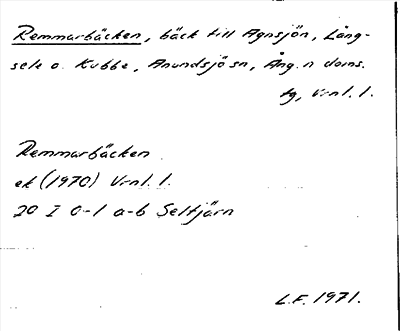 Remmarbäcken, bäck till Agnsjön, Lång-
sele o. Kubbe, Anundsjö sn, Ång. n doms.
tg, Vrnl. l.
Remmarbäcken
ek (1970) Vrnl. l.
20 I 0-1 a-b Seltjärn
L.F. 1971.